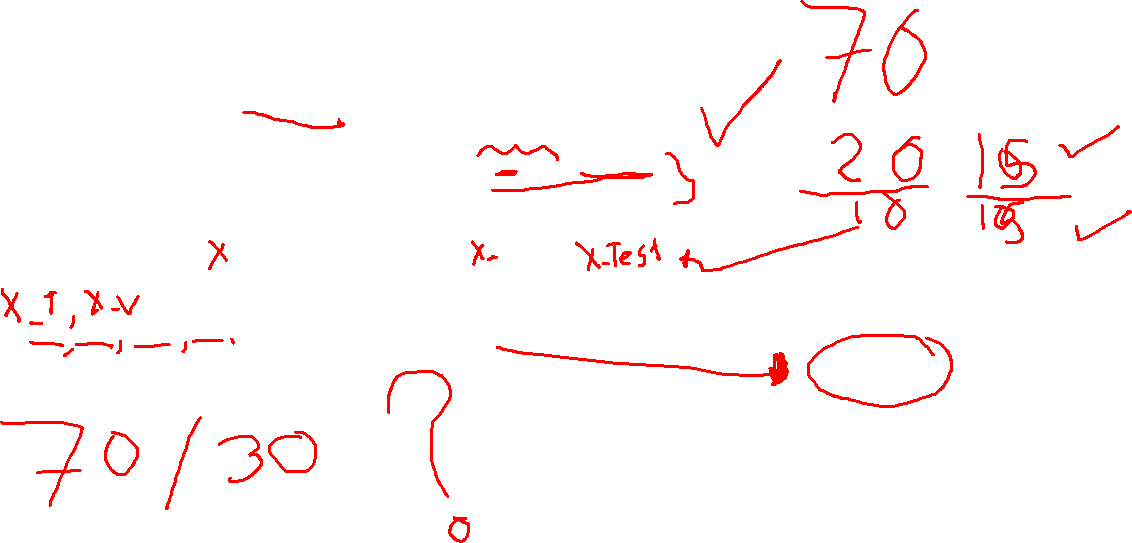 70
20 15
10 15
X X- X-Test
X-T, X-V
70/30 ?